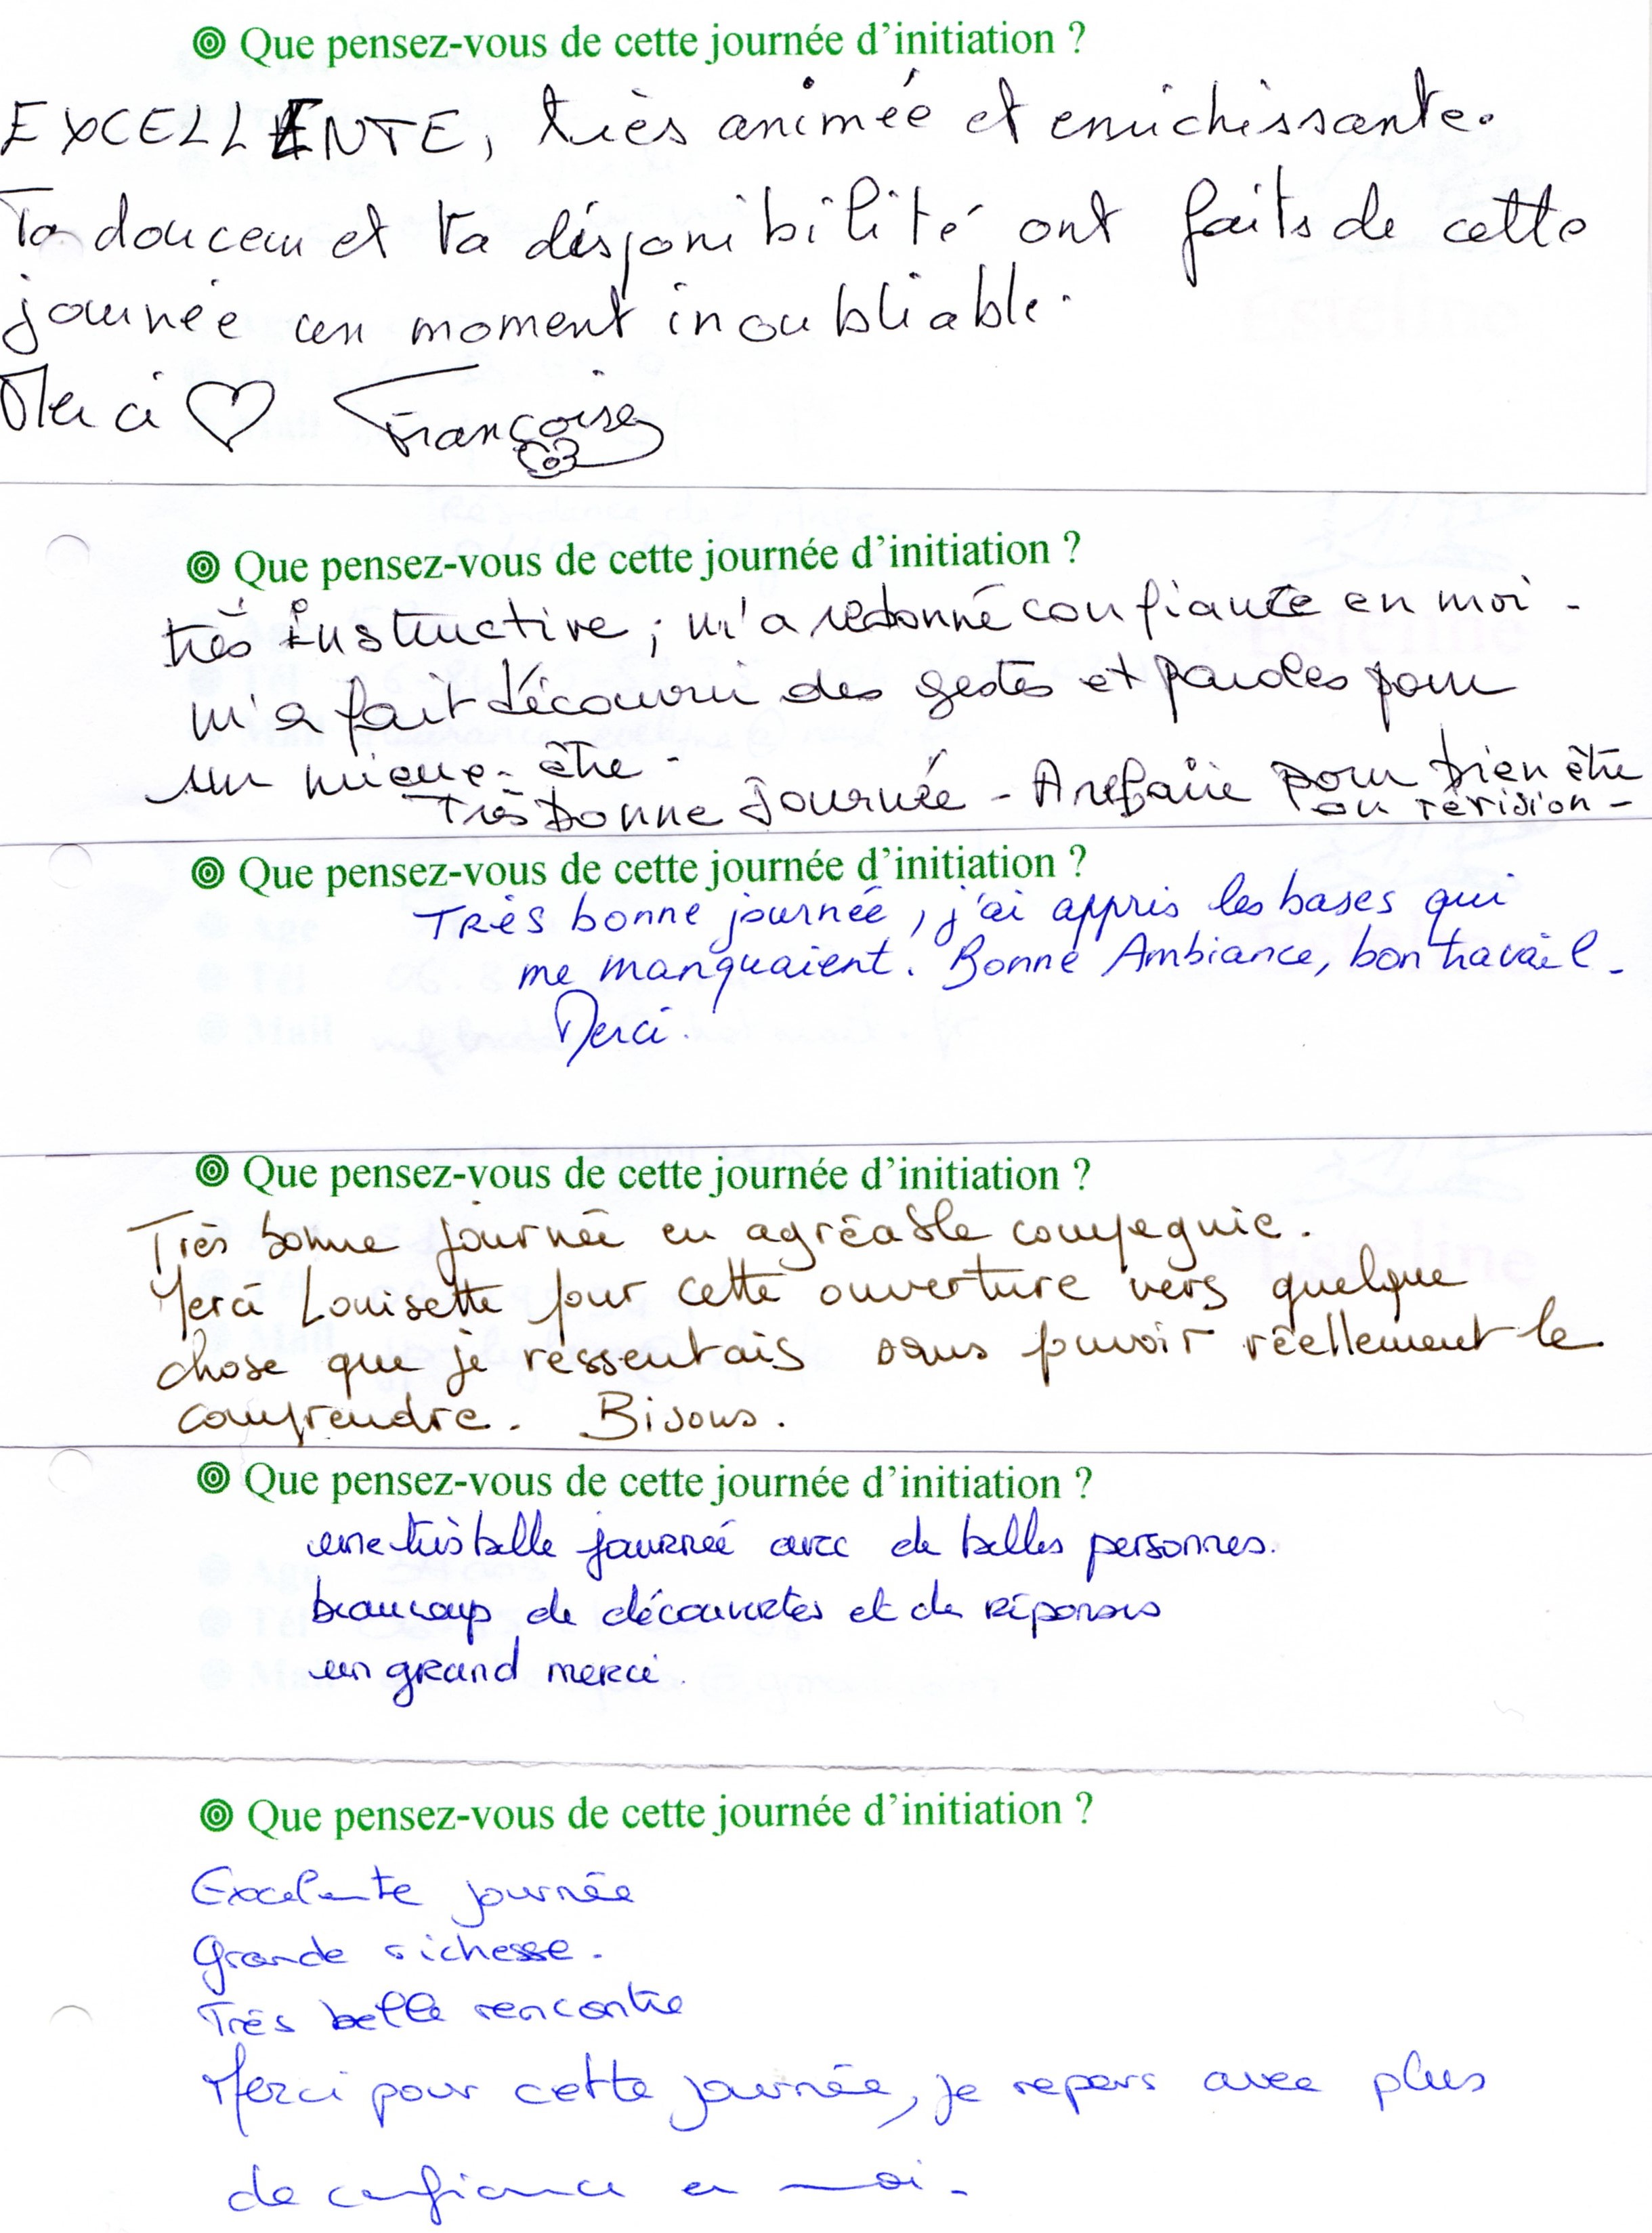 Que pensez-vous de cette journée d'initiation ?
EXCELLENTE, très animée et enrichissante.
Ta douceur et ta disponibilité ont faits de cette
journée un moment inoubliable.
Merci ♡ Françoise
Que pensez-vous de cette journée d'initiation ?
très instructive ; m'a redonné confiance en moi -
m'a fait découvrir des gestes et paroles pour
un mieux-être -
Très bonne journée - A refaire pour bien être
ou révision -
Que pensez-vous de cette journée d'initiation ?
Très bonne journée, j'ai appris les bases qui
me manquaient. Bonne Ambiance, bon travail -
Merci.
Que pensez-vous de cette journée d'initiation ?
Très bonne journée en agréable compagnie.
Merci Louisette pour cette ouverture vers quelque
chose que je ressentais sans pouvoir réellement le
comprendre. Bisous.
Que pensez-vous de cette journée d'initiation ?
une très belle journée avec de belles personnes.
beaucoup de découvertes et de réponses
un grand merci
Que pensez-vous de cette journée d'initiation ?
Excelente journée
Grande richesse.
Très belle rencontre
Merci pour cette journée, je repars avec plus
de confiance en moi -